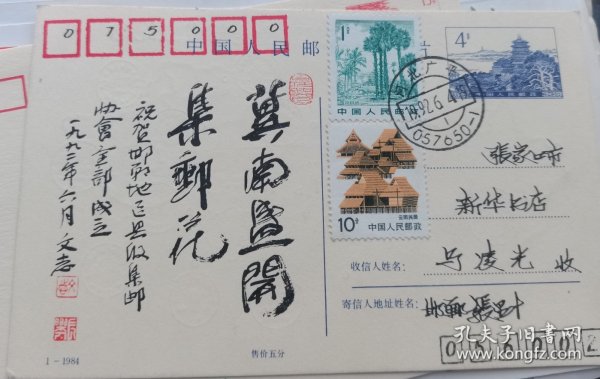 015000
中国人民邮
片
4分
1分
中国人民邮政
河北广平
1992.6.4
057650-1
10分
云南民居
中国人民邮政
冀南盛開
集郵花
祝贺邯郸地区县收集邮
协會全部成立
一九九二年六月 文志
張家口市
新华书店
收信人姓名:
凌光 收
寄信人地址姓名:
1-1984
售价五分
孔夫子旧书网
www.kongfz.com